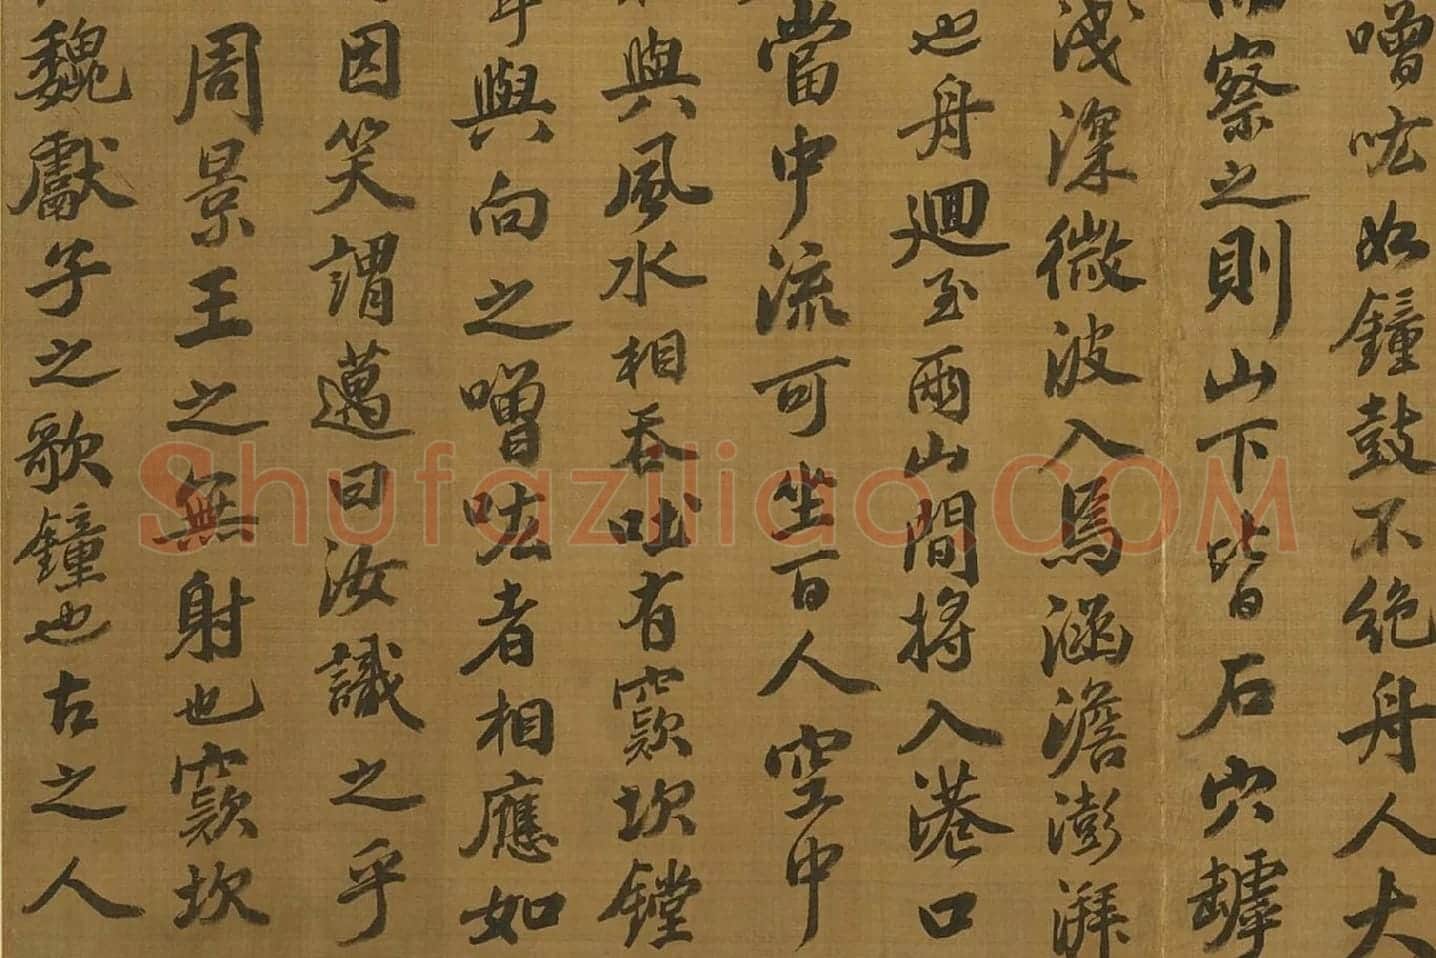 噌吰如鐘鼓不絕舟人大
察之則山下皆石穴罅
淺深微波入焉涵澹澎湃
也舟迴至兩山間將入港口
當中流可坐百人空中
與風水相吞吐有窾坎鏜
與向之噌吰者相應如
因笑謂邁曰汝識之乎
周景王之無射也窾坎
魏獻子之歌鐘也古之人
Shufaziliao.COM